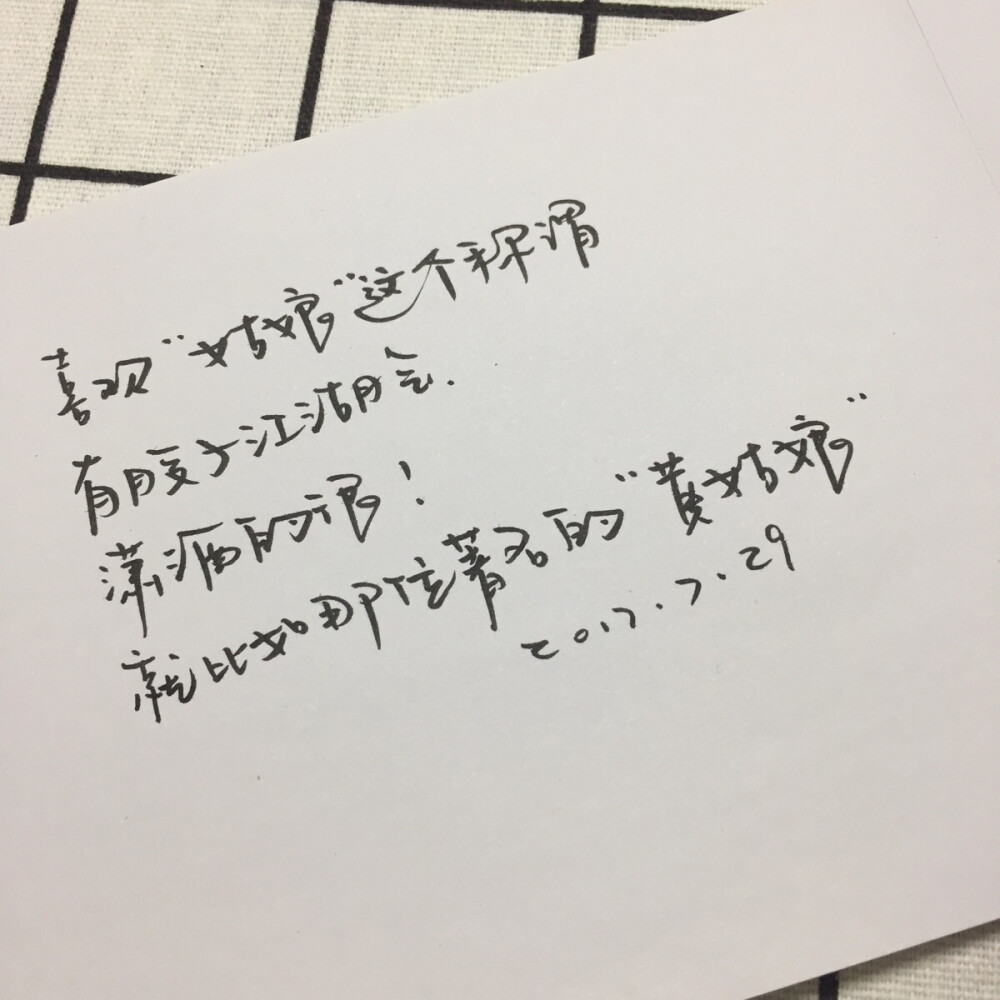 喜欢“姑娘”这个称谓
有股子江湖气.
潇洒的很！
就比如那位著名的“黄姑娘”
2017.7.29